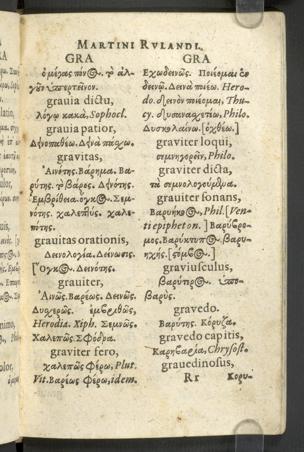 MARTINI RVLANDI.
GRA
ὁ μέγας πόνος. τὸ ἀλ-
γοῦν
grauia dictu,
λόγω κακά, Sophocl.
grauia patior,
Δεινοπαθέω. Δεινὰ πάσχω.
grauitas,
Αἰνότης. Βάρημα. Βα-
ρύτης. τὸ βάρος. Δεινότης.
Ἐμβρίθεια. ὄγκος. Σε-
μνότης. χαλεπὸς, χαλε-
πότης.
grauitas orationis,
Δεινολογία. Δείνωσις.
Ὄγκος. Δεινότης.
grauiter,
Αἰνῶς. Βαρέως. Δεινῶς.
Δυσχερῶς. ἐμβριθῶς,
Herodia. Xiph. Σεμνῶς.
Χαλεπῶς. Σφόδρα.
grauiter fero,
χαλεπῶς φέρω, Plut.
Vit. Βαρέως φέρω, idem.
GRA
Ἔχω δεινῶς. Ποιέομαι ἐν
δεινῷ. Δεινὰ ποιέω. Hero-
do. δεινὸν ποιέομαι, Thu-
cy. δυσανασχετέω, Philo.
Δυσκολαίνω. [ὀχθέω.]
grauiter loqui,
σεμνηγορεῖν, Philo.
grauiter dicta,
τὰ σεμνολογούμενα.
grauiter sonans,
Βαρυηχος, Phil. [Ven-
ti epitheton.] Βαρύβρο-
μος. Βαρύκτυπος βαρυ-
ηχής.
grauiusculus,
βαρύτερος. ὑπο-
βαρύς.
grauedo.
Βαρύτης. Κόρυζα.
grauedo capitis,
Καρηβαρία, Chrysost.
grauedinosus,
Rr
Κορυ-